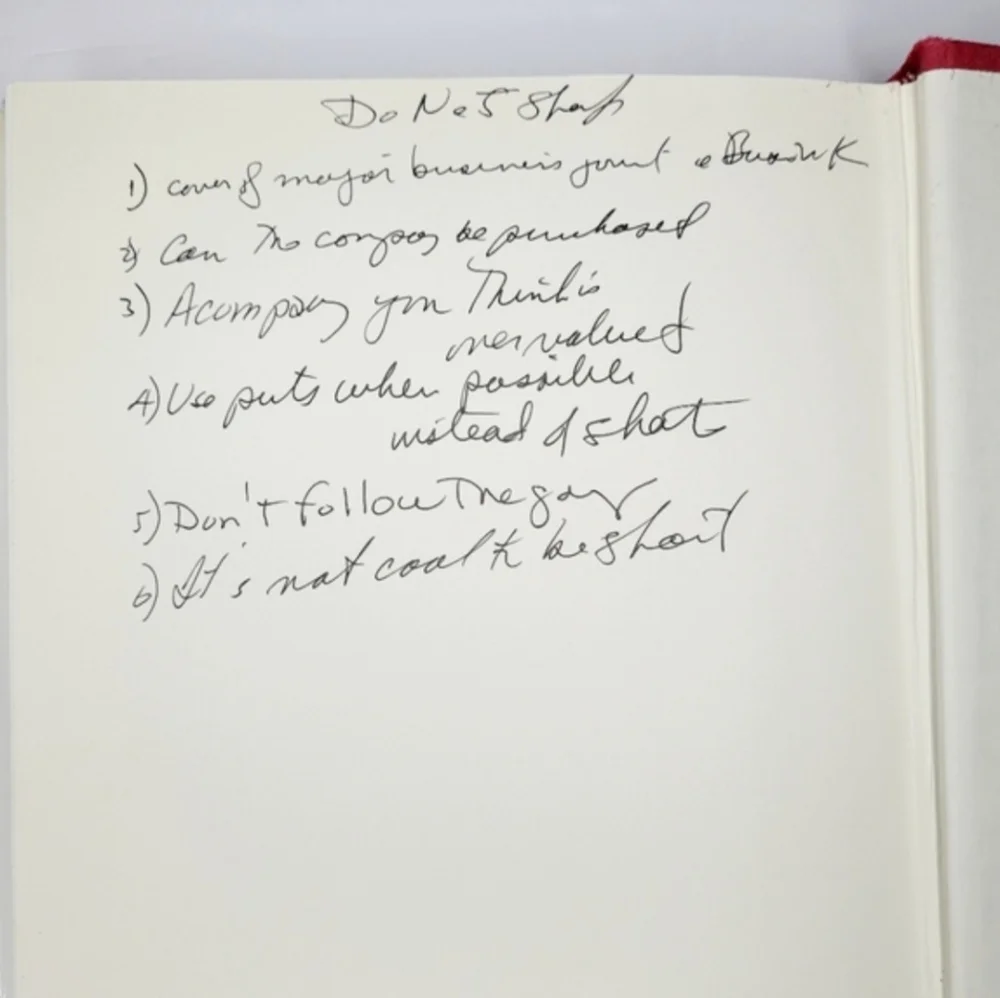 Do Not Short
1) cover of major business
2) Can the company be purchased
3) A company you Think is
overvalued
4) Use puts when possible
instead of short
5) Don't follow The
6) It's not cool to be short